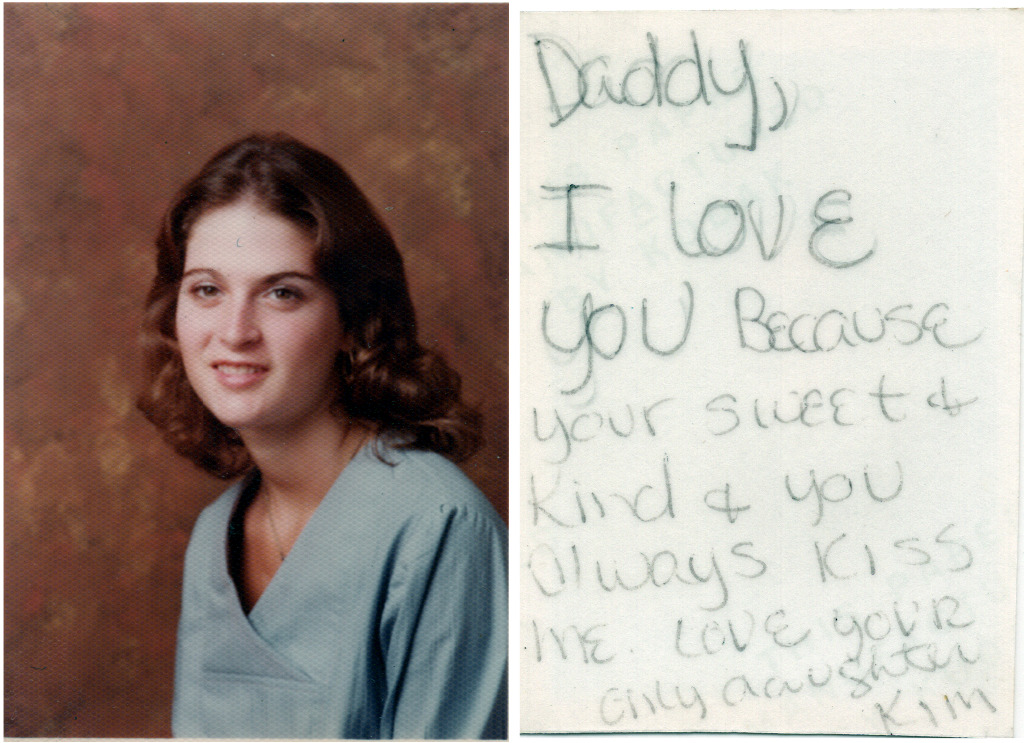 Daddy,
I love
you Because
your sweet &
Kind & you
always kiss
me. Love your
only daughter
Kim